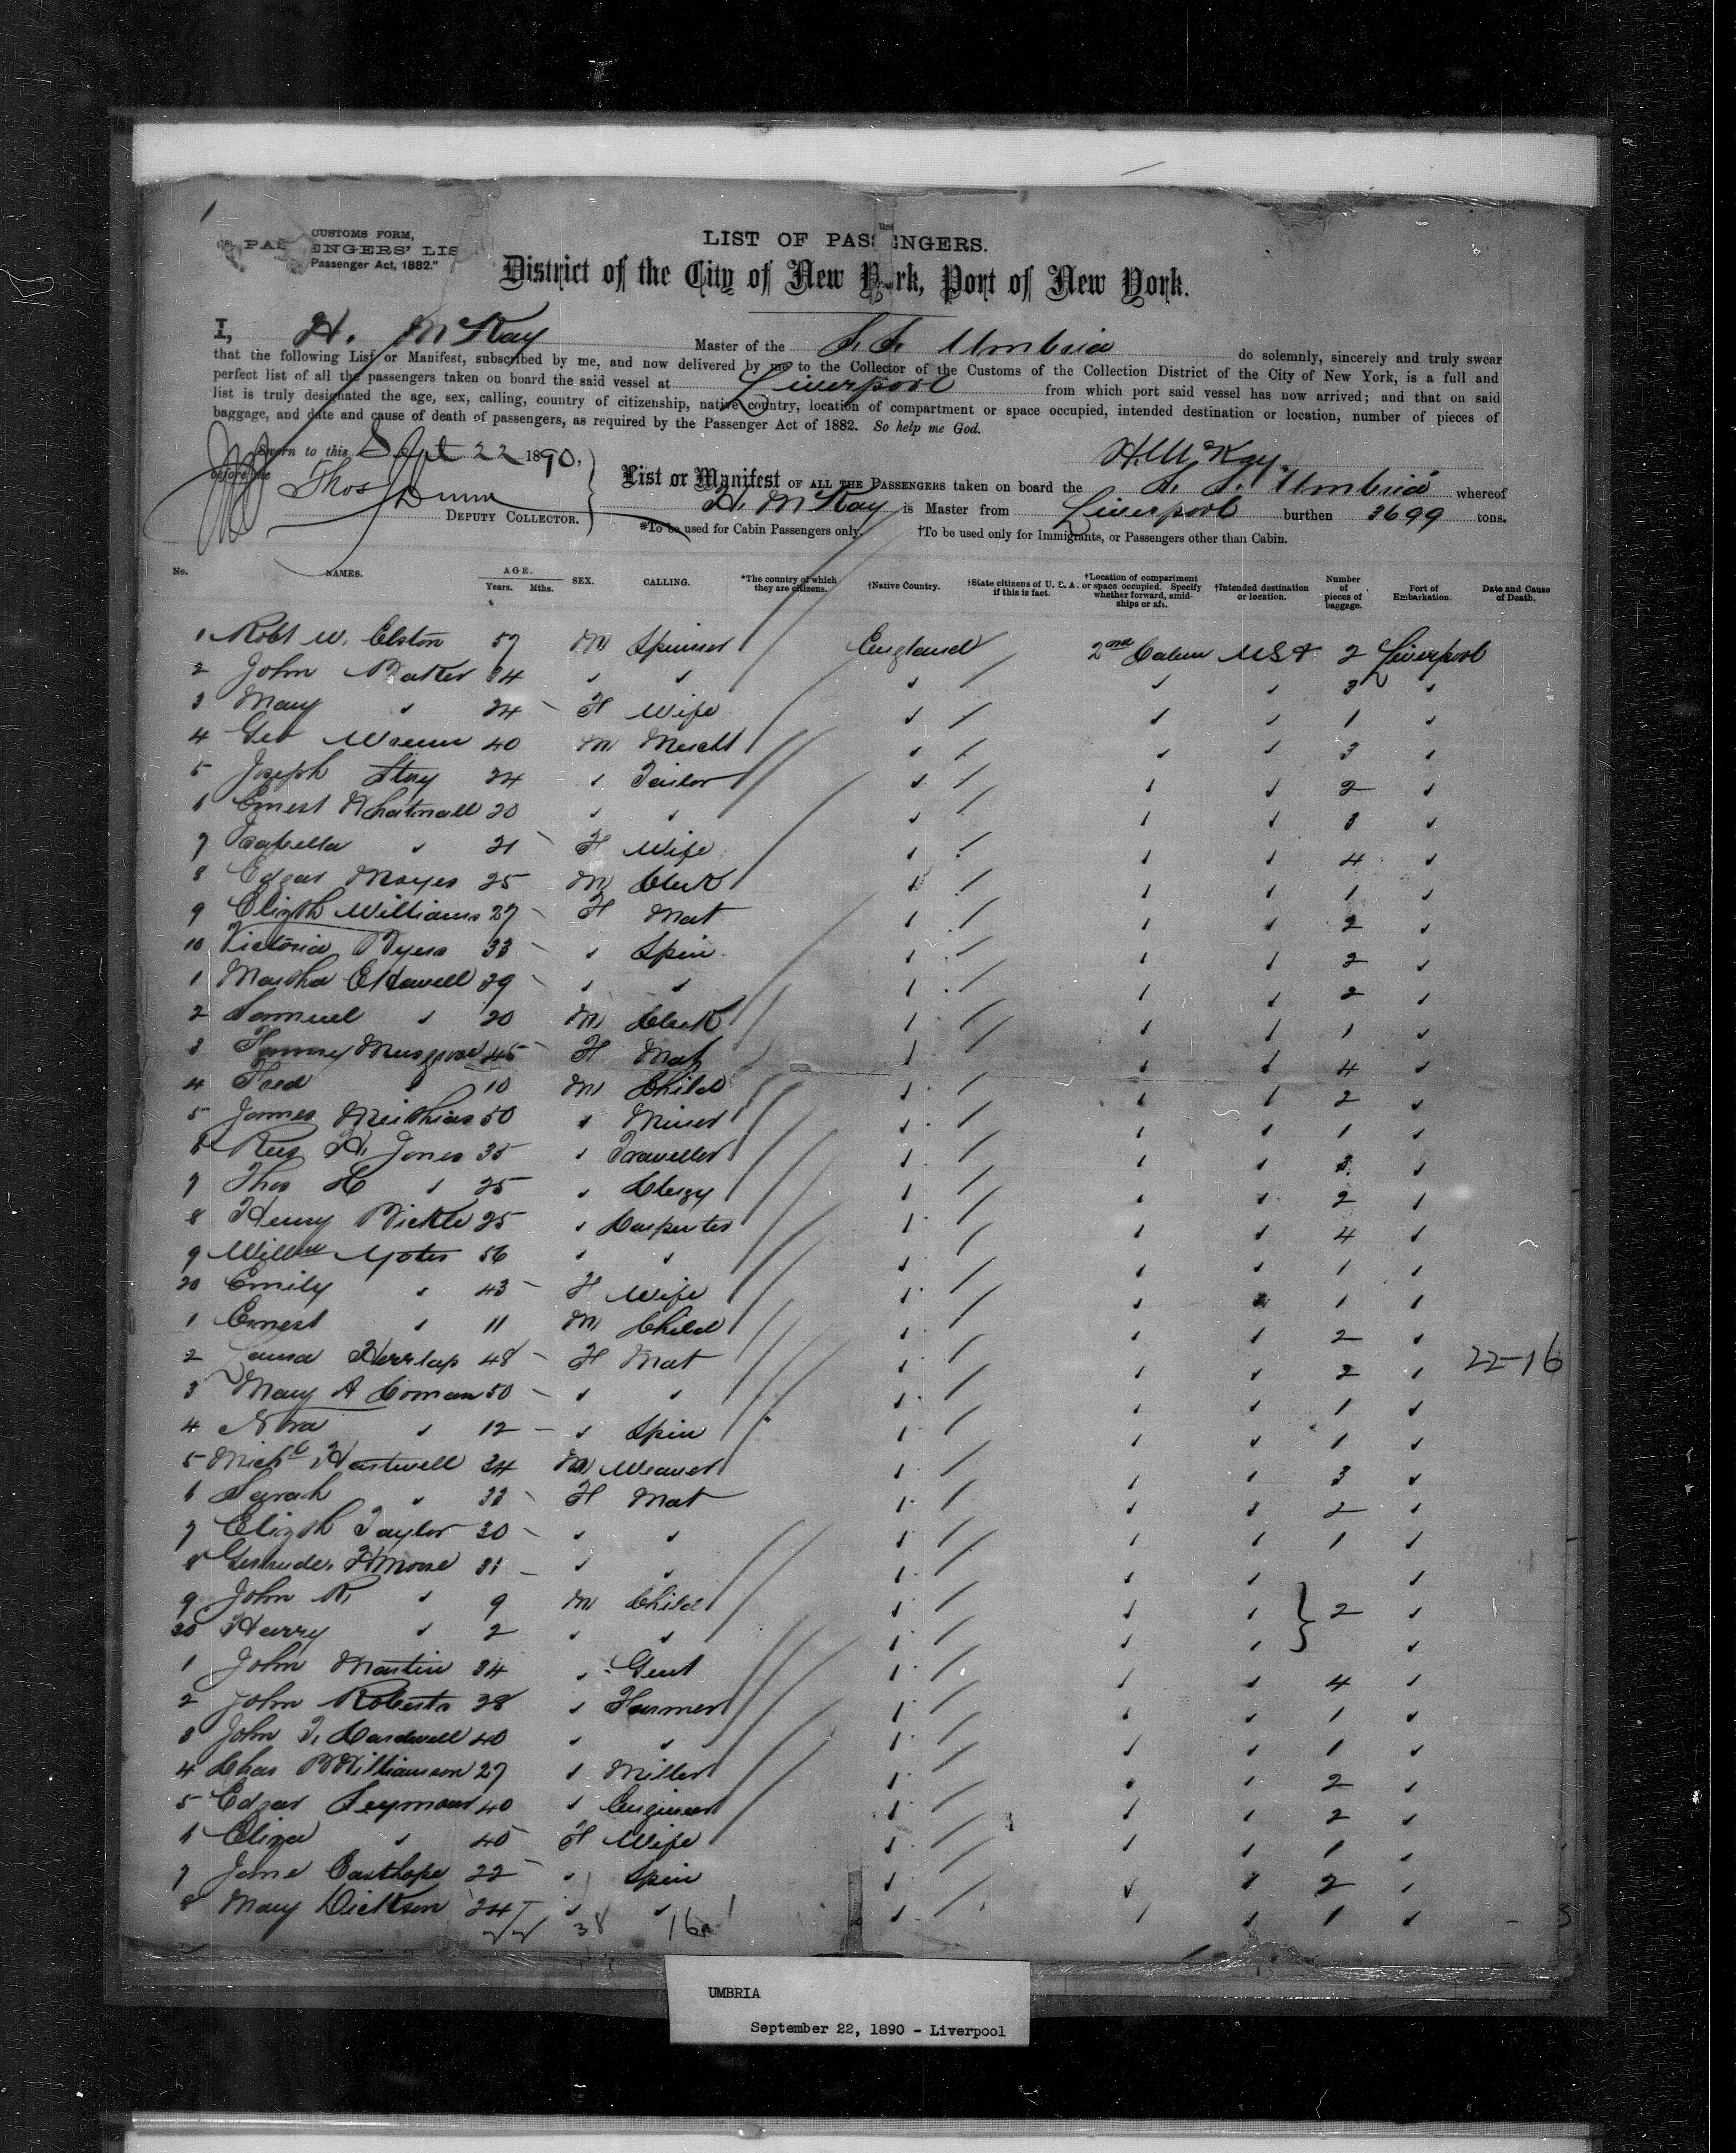 1
CUSTOMS FORM,
PASSENGERS' LIS
Passenger Act, 1882."
LIST OF PASSENGERS.
District of the City of New York, Port of New York.
I, H. McKay Master of the S.S. Umbria do solemnly, sincerely and truly swear
that the following List or Manifest, subscribed by me, and now delivered by me to the Collector of the Customs of the Collection District of the City of New York, is a full and
perfect list of all the passengers taken on board the said vessel at Liverpool from which port said vessel has now arrived; and that on said
list is truly designated the age, sex, calling, country of citizenship, native country, location of compartment or space occupied, intended destination or location, number of pieces of
baggage, and date and cause of death of passengers, as required by the Passenger Act of 1882. So help me God.
Sworn to this Sept 22 1890,
before me Thos Dunn
DEPUTY COLLECTOR.
H. McKay
List or Manifest OF ALL THE PASSENGERS taken on board the S. S. Umbria whereof
H. McKay is Master from Liverpool burthen 3699 tons.
*To be used for Cabin Passengers only. †To be used only for Immigrants, or Passengers other than Cabin.
No. NAMES. AGE. Years. Mths. SEX. CALLING. *The country of which they are citizens. †Native Country. †State citizens of U. S. A. if this is fact. †Location of compartment or space occupied. Specify whether forward, amidships or aft. †Intended destination or location. Number of pieces of baggage. Port of Embarkation. Date and Cause of Death.
1 Robt W. Elston 57 M Spinner England 2nd Cabin USA 2 Liverpool
2 John Baker 34 " " " " " 3 "
3 Mary " 24 F Wife " " " 1 "
4 Geo 40 M Mercht " " " 3 "
5 Joseph Stay 24 " Tailor " " " 2 "
6 Ernest Whatnall 20 " " " " " 3 "
7 Isabella " 21 F Wife " " " 4 "
8 Edgar Mayes 25 M Clerk " " " 1 "
9 Elizth Williams 27 F Mat " " " 2 "
10 Victoria Byers 33 " Spin " " " 2 "
1 Martha E Howell 29 " " " " " 2 "
2 Samuel " 20 M Clerk " " " 1 "
3 Fanny Musgrove 45 F Mat " " " 4 "
4 Fred " 10 M Child " " " 2 "
5 James 50 " Miner " " " 1 "
6 Rees H. Jones 35 " Traveller " " " 3 "
7 Thos " 25 " Clergy " " " 2 "
8 Henry Bickle 25 " Carpenter " " " 4 "
9 Willm Yates 56 " " " " " 1 "
20 Emily " 43 F Wife " " " 1 "
1 Ernest " 11 M Child " " " 2 "
2 Laura 48 F Mat " " " 2 " 22-16
3 Mary A Coman 50 " " " " " 1 "
4 Nora " 12 " Spin " " " 1 "
5 Michl Hartwell 34 M Weaver " " " 3 "
6 Sarah " 33 F Mat " " " 2 "
7 Elizth Taylor 30 " " " " " 1 "
8 Gertrude 31 " " " " " "
9 John R. " 9 M Child " " " 2 "
30 Harry " 2 " " " " " "
1 John Martin 34 " Gent " " " 4 "
2 John Roberts 28 " Farmer " " " 1 "
3 John T. Cardwell 40 " " " " " 1 "
4 Chas Williamson 27 " Miller " " " 2 "
5 Edgar Seymour 40 " Engineer " " " 2 "
6 Eliza " 45 F Wife " " " 1 "
7 Jane Easthope 22 " Spin " " " 2 "
8 Mary Dickson 24 " " " " " 1 "
38 16
UMBRIA
September 22, 1890 - Liverpool